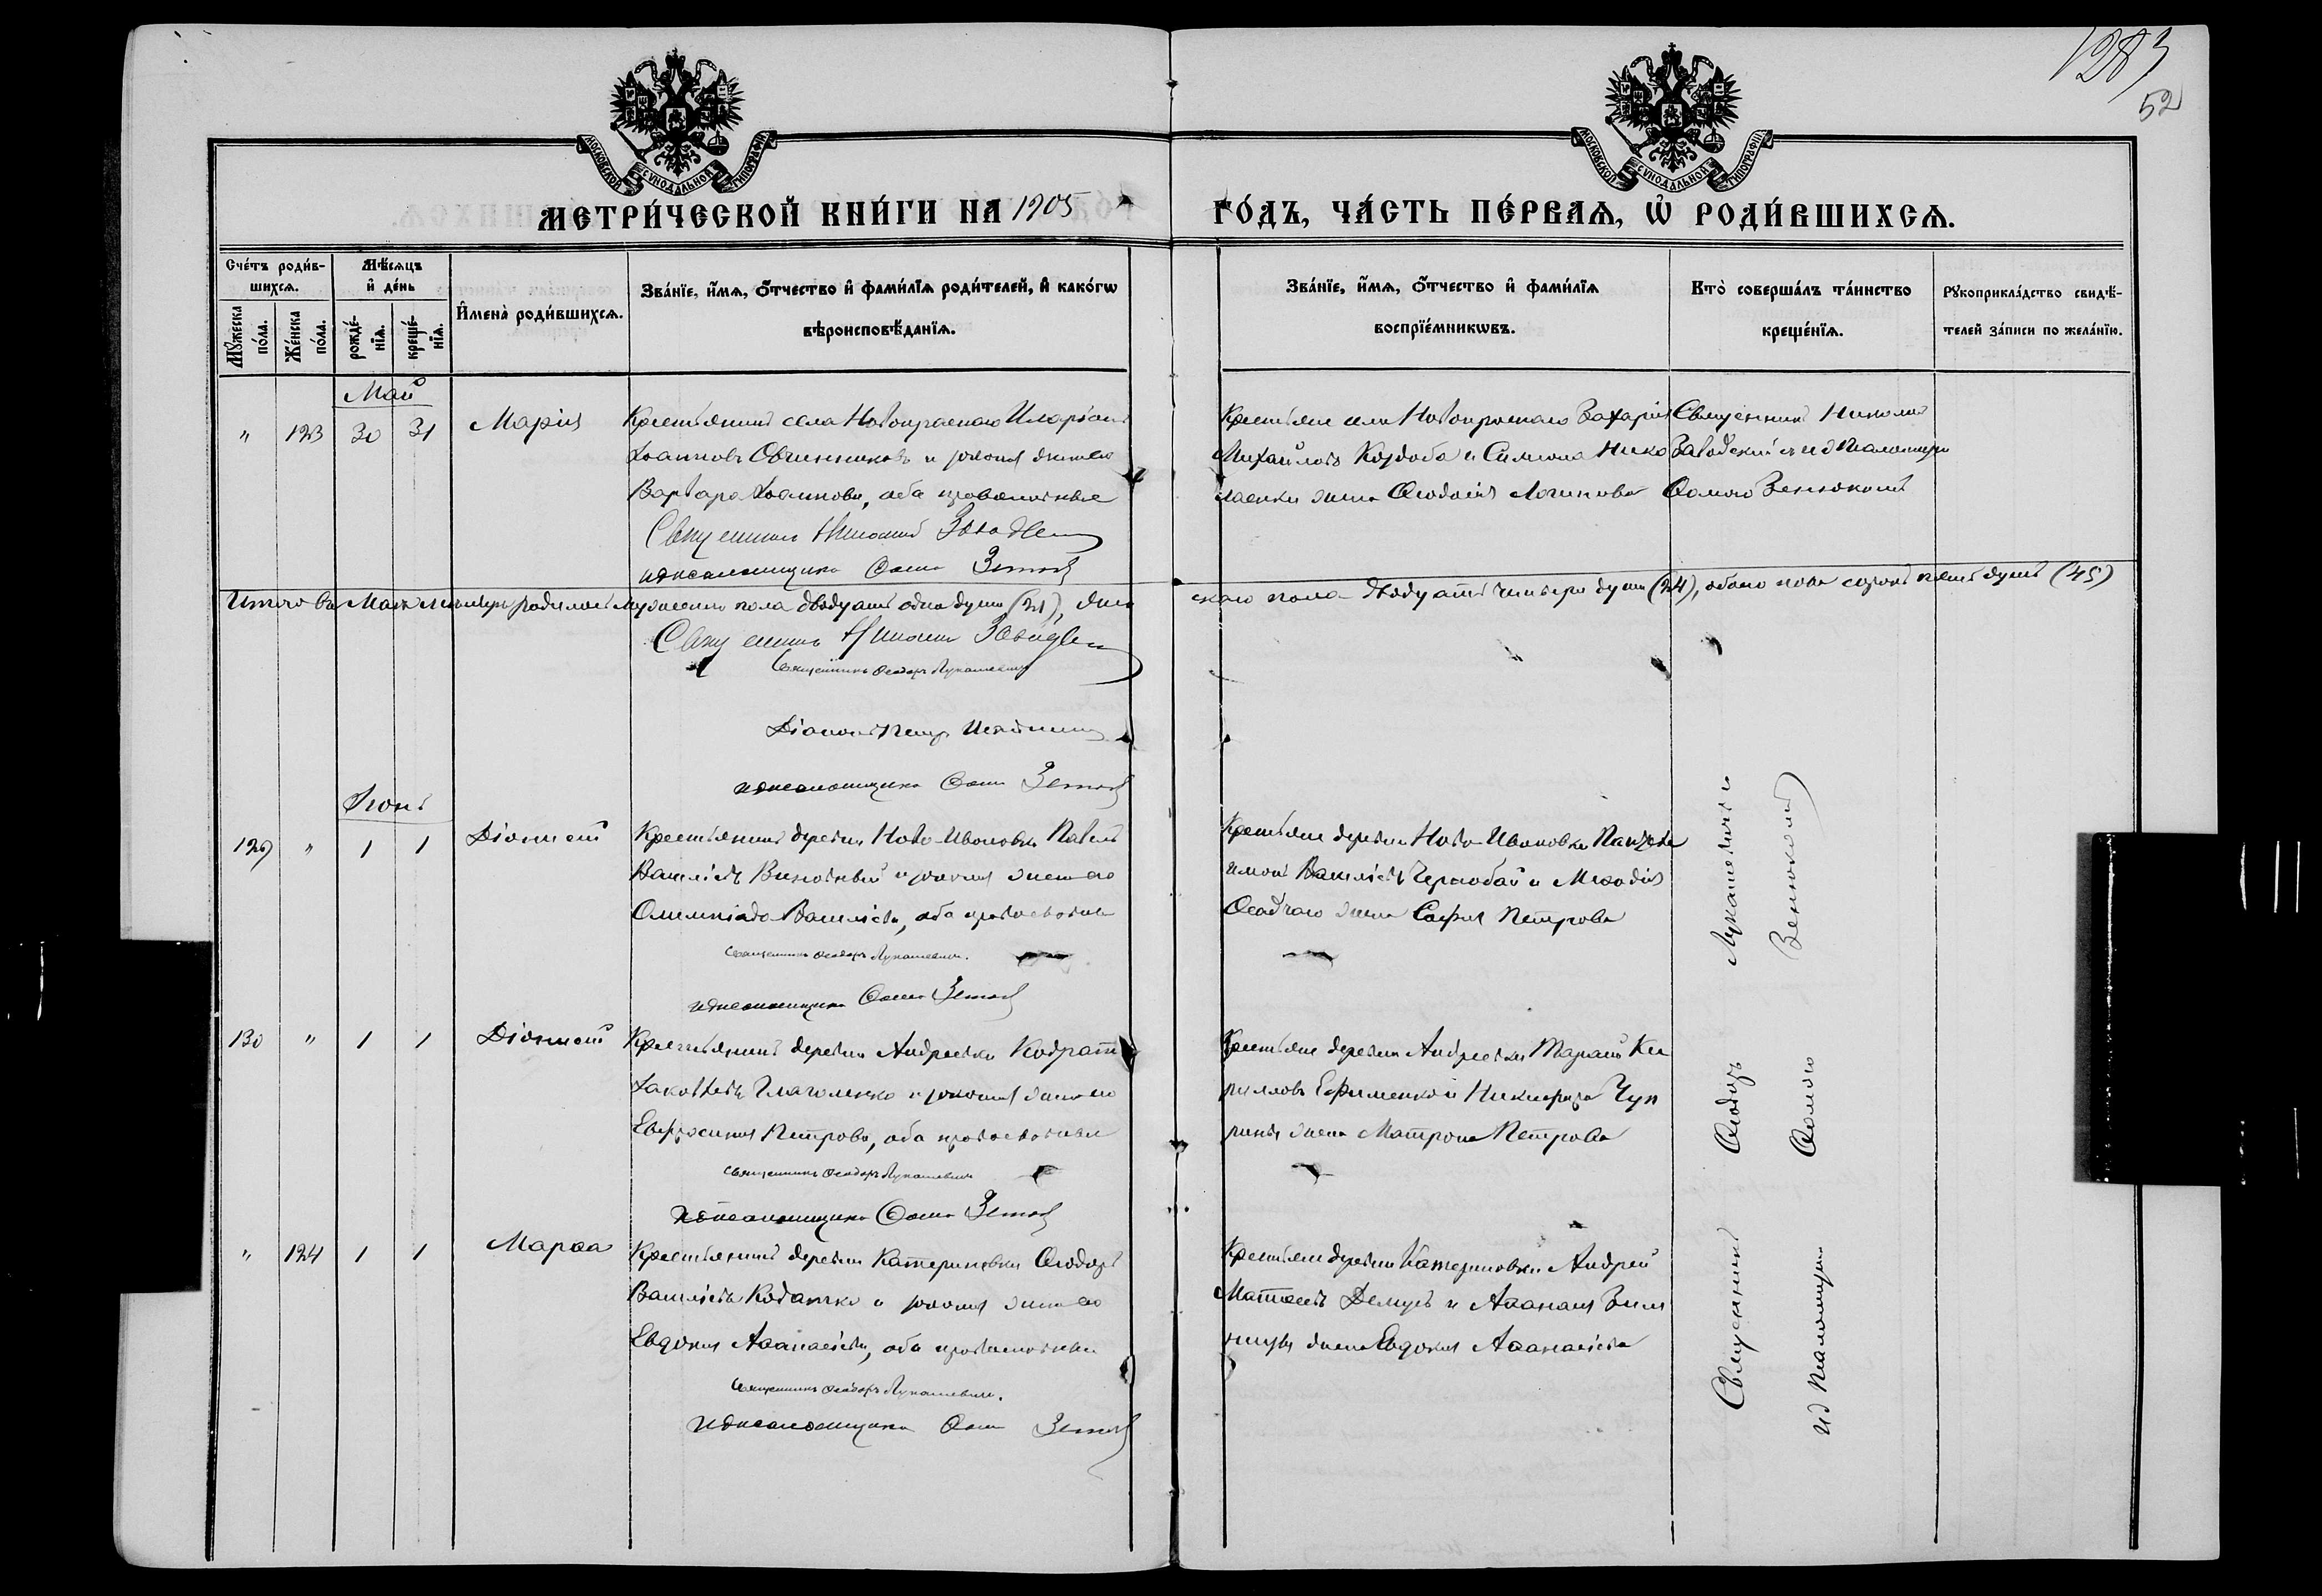 1283
52
МОСКОВСКОЙ СѴНОДАЛЬНОЙ ТИПОГРАФІИ
МОСКОВСКОЙ СѴНОДАЛЬНОЙ ТИПОГРАФІИ
МЕТРИ́ЧЕСКОЙ КНИ́ГИ НА 1905 ГО́ДЪ, ЧА́СТЬ ПЕ́РВАѦ, Ѡ РОДИ́ВШИХСѦ.
Сче́тъ роди́вшихсѧ.
Мꙋ́жеска по́ла.
Же́нска по́ла.
Мѣ́сѧцъ и҆ де́нь
рожде́нїѧ.
креще́нїѧ.
И҆мена̀ роди́вшихсѧ.
Зва́нїе, и҆́мѧ, ѻ҆́тчество и҆ фами́лїѧ роди́телей, и҆ како́гѡ
вѣроисповѣ́данїѧ.
Зва́нїе, и҆́мѧ, ѻ҆́тчество и҆ фами́лїѧ
воспрїе́мникѡвъ.
Кто̀ соверша́лъ та́инство
креще́нїѧ.
Рꙋкоприкла́дство свидѣ́-
телей за́писи по жела́нїю.
Май
" 123 30 31 Марія Крестьянинъ села Новопрагскаго Иларіонъ
Іоанновъ Овчинниковъ и законная жена его
Варвара Іоаннова, оба православные
Священникъ Николай Заводскій
и д псаломщика Ѳома Зенюкъ
Крестьяне села Новопрагскаго Захарія
Михайловъ Кордоба и Симеона Нико
лаенки жена Ѳеодосія Логинова
Священникъ Николай
Заводскій и и д псаломщи
Ѳомою Зенюкомъ
Итого въ Маѣ мѣсяцѣ родилось мужескаго пола двадцать одна душа (21), жен
скаго пола двадцать четыре души (24), обоего пола сорокъ пять душъ (45)
Священникъ Николай Заводскій
Священникъ Ѳеодоръ Лукашевичъ
Діаконъ Петръ
и д псаломщика Ѳома Зенюкъ
Іюнь
129 " 1 1 Діонисій Крестьянинъ деревни Ново-Ивановки Павелъ
Василіевъ Виновный и законная жена его
Олимпіада Василіева, оба православные
Священникъ Ѳеодоръ Лукашевичъ.
и д псаломщика Ѳома Зенюкъ
Крестьяне деревни Ново-Ивановки Пантеле
имонъ Василіевъ Чернобай и Меѳодія
Осадчаго жена Софія Петрова
130 " 1 1 Діонисій Крестьянинъ деревни Андреевки Кодратъ
Іаковлевъ Глаголенко и законная жена его
Евфросинія Петрова, оба православные
Священникъ Ѳеодоръ Лукашевичъ
и д псаломщика Ѳома Зенюкъ
Крестьяне деревни Андреевки Тарасій Ки
рилловъ Ефименко и Никифора Чуп
рины жена Матрона Петрова
" 124 1 1 Марѳа Крестьянинъ деревни Катериновки Ѳеодоръ
Василіевъ Кодачко и законная жена его
Евдокія Аѳанасіева, оба православные
Священникъ Ѳеодоръ Лукашевичъ.
и д псаломщика Ѳома Зенюкъ
Крестьяне деревни Катериновки Андрей
Матѳеевъ Демусъ и Аѳанасія
жена Евдокія Аѳанасіева
Священникъ Ѳеодоръ Лукашевичъ и
и д псаломщика Ѳомою Зенюкомъ